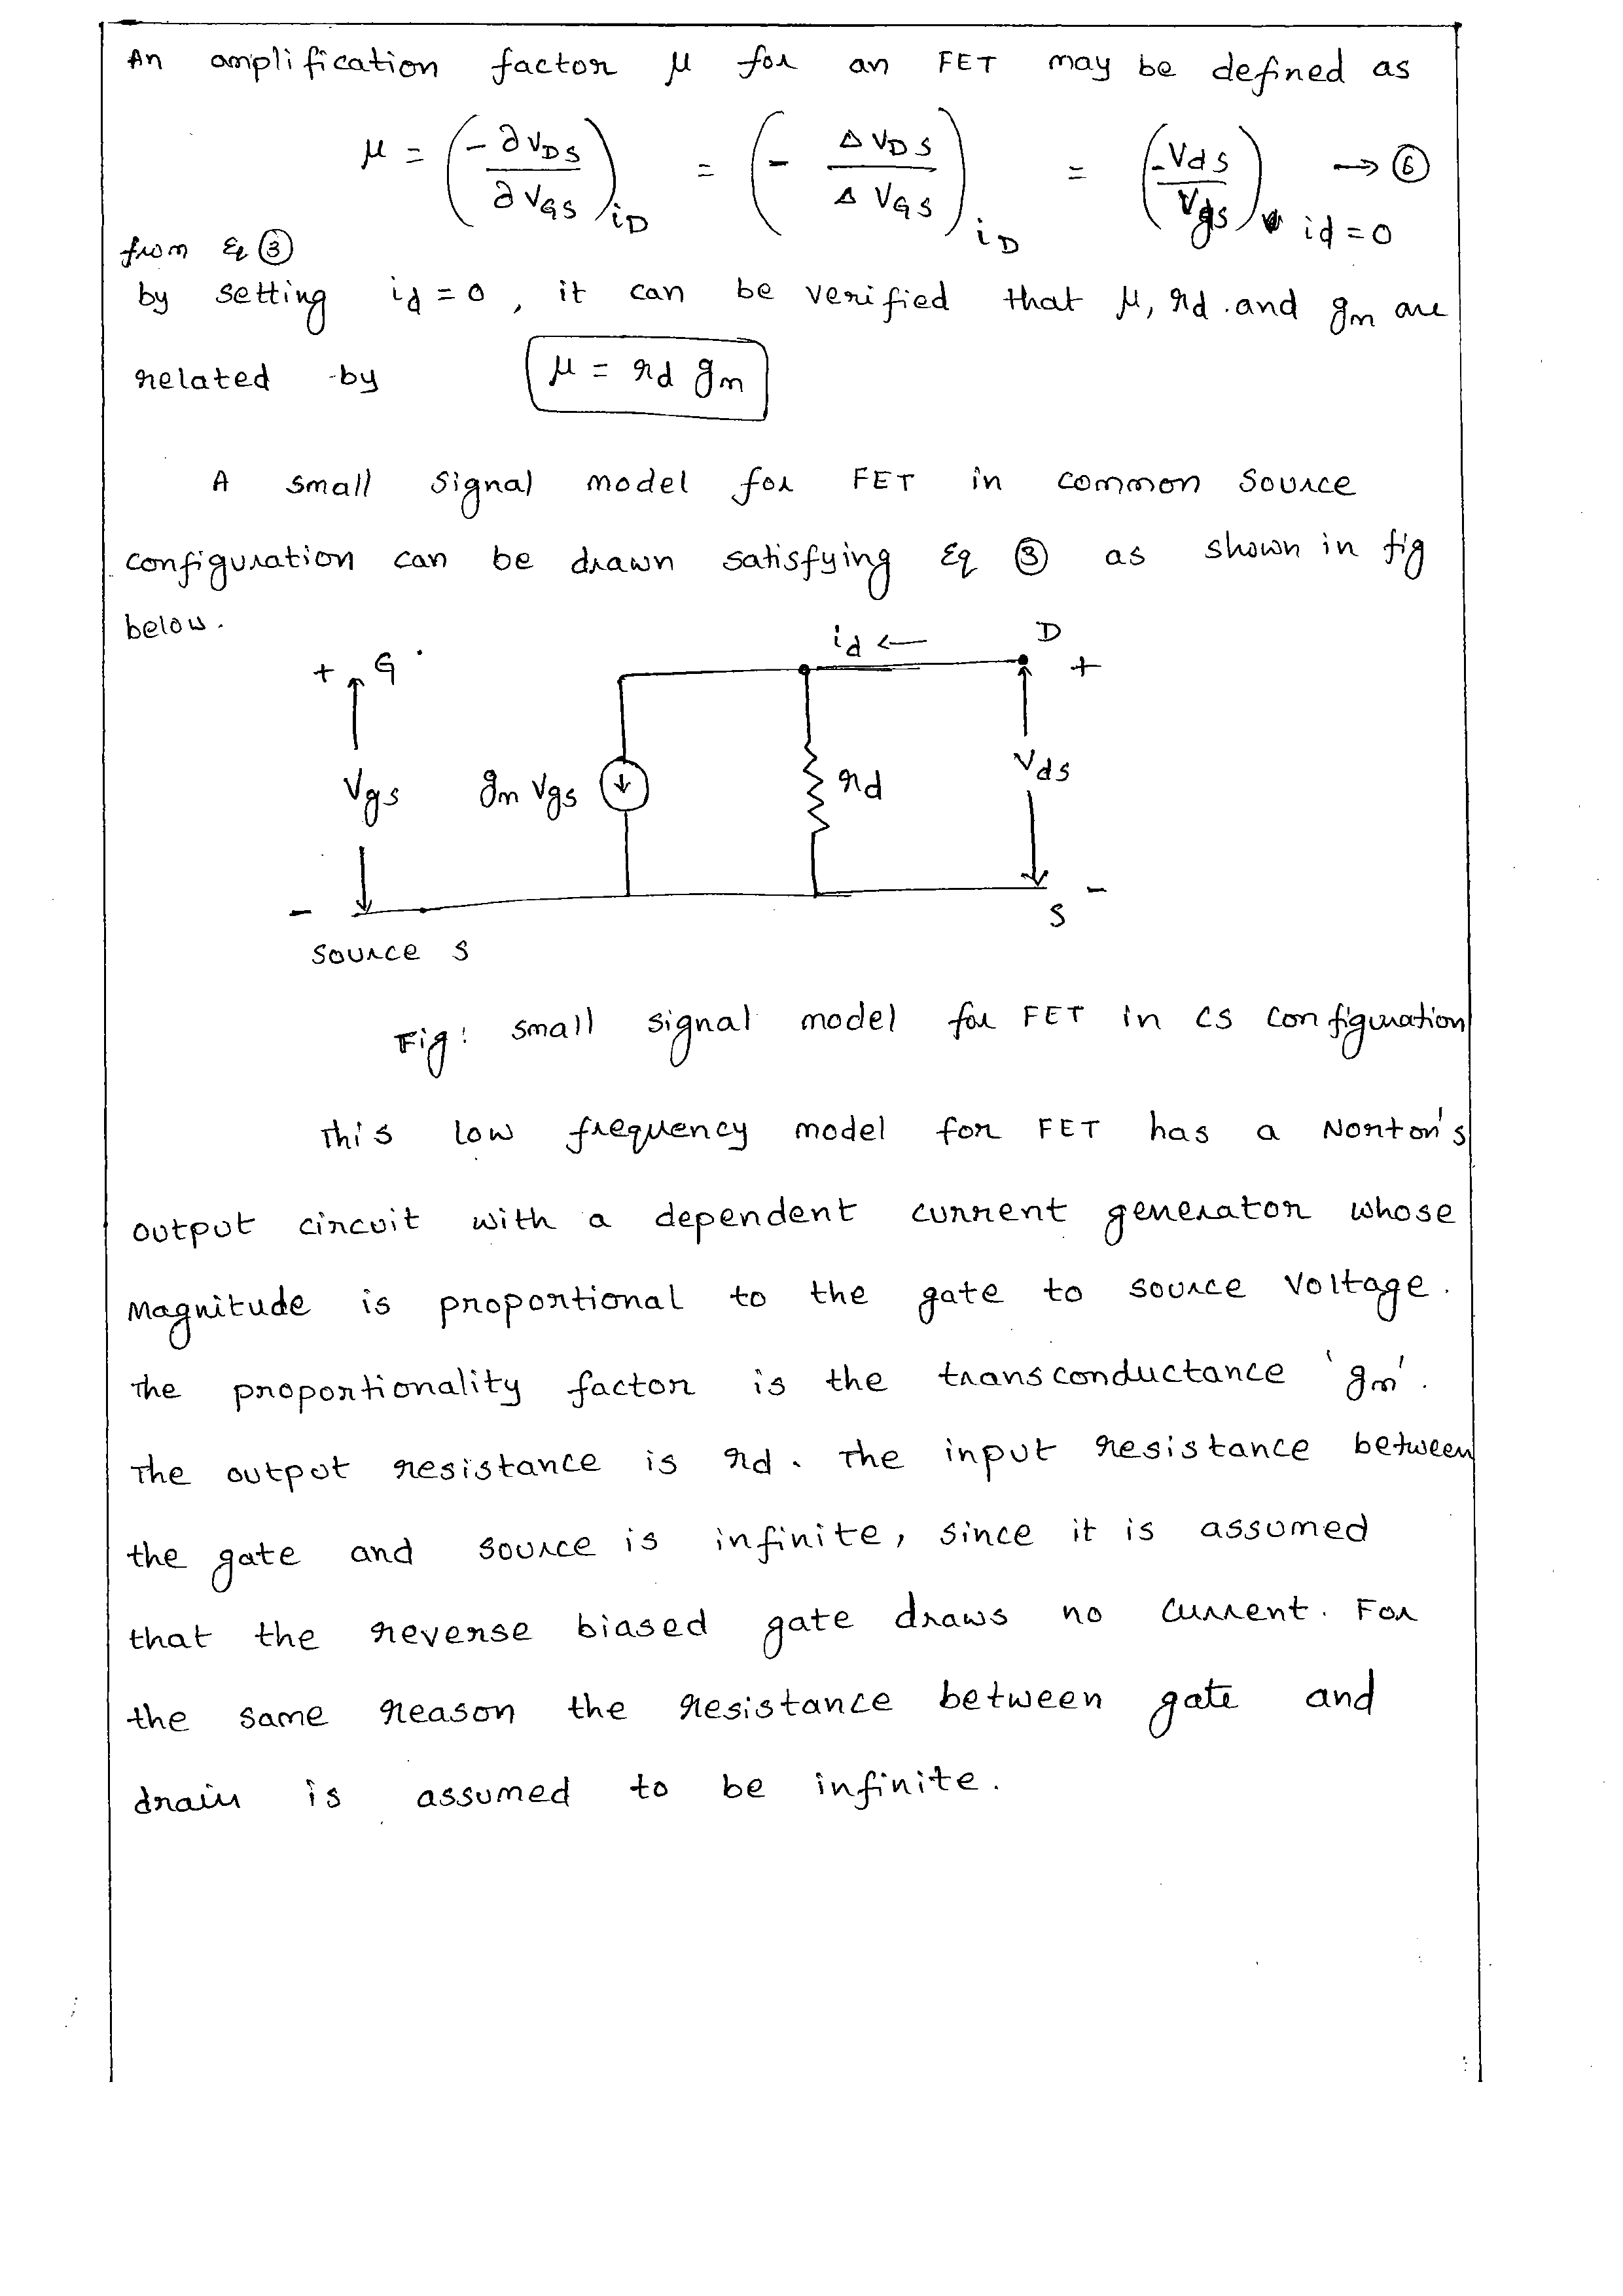 An amplification factor μ for an FET may be defined as
μ = (-∂VDS / ∂VGS)iD = (- ΔVDS / ΔVGS)iD = (-Vds / Vgs) id = 0 → ⑥
from Eq ③
by setting id = 0, it can be verified that μ, rd and gm are
related by μ = rd gm
A small signal model for FET in common source
configuration can be drawn satisfying Eq ③ as shown in fig
below.
id ← D
+ G +
Vgs gm Vgs rd Vds
- S -
source S
Fig: small signal model for FET in CS configuration
This low frequency model for FET has a Norton's
output circuit with a dependent current generator whose
Magnitude is proportional to the gate to source voltage.
The proportionality factor is the transconductance 'gm'.
The output resistance is rd. The input resistance between
the gate and source is infinite, since it is assumed
that the reverse biased gate draws no current. For
the same reason the resistance between gate and
drain is assumed to be infinite.